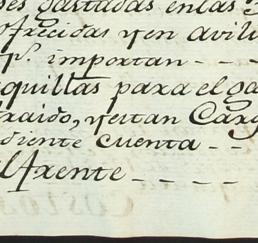 ses gastadas en las
frecidas y en avili
pꝰ. importan - - -
quillas para el ga
traido, y estan Carg
diente cuenta - -
al frente - - - -